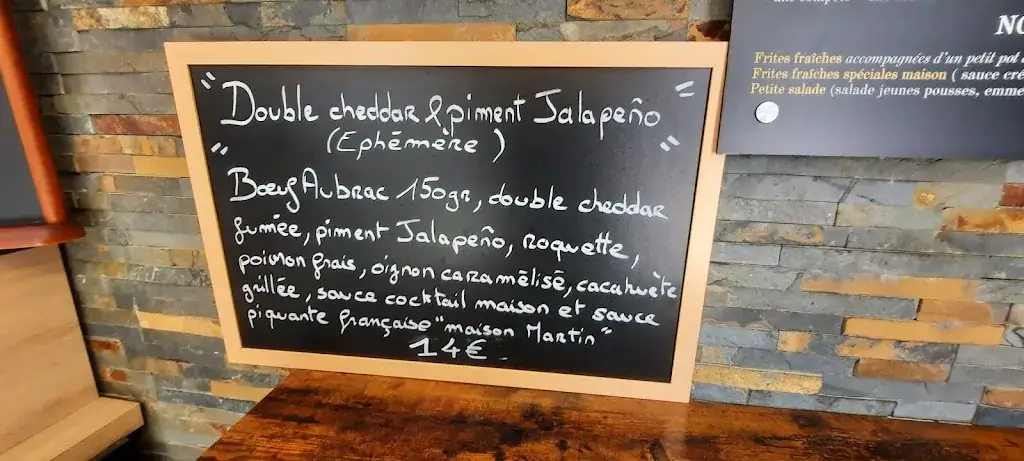 " Double cheddar & piment Jalapeño "
" (Ephémère) "
Bœuf Aubrac 150gr, double cheddar
fumée, piment Jalapeño, roquette,
poivron frais, oignon caramélisé, cacahuète
grillée, sauce cocktail maison et sauce
piquante française "maison Martin"
14€
NO
Frites fraîches accompagnées d'un petit pot
Frites fraîches spéciales maison ( sauce
Petite salade (salade jeunes pousses,